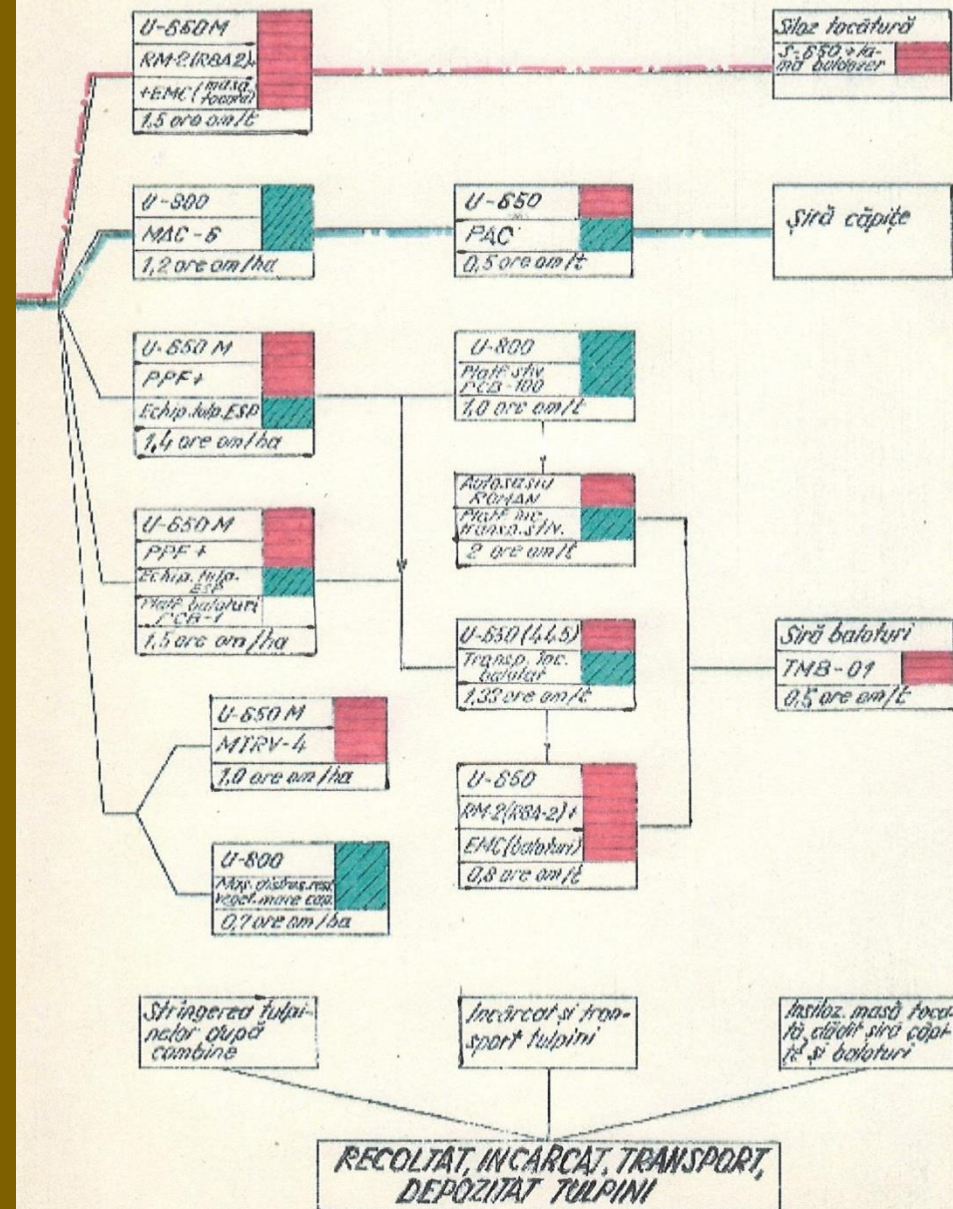 U-650M
RM-2(RBA2)+
+EMC(masă tocată)
1,5 ore om/t
Siloz tocătură
S-650+la-
mă buldozer
U-800
MAC-6
1,2 ore om/ha
U-650
PAC
0,5 ore om/t
Șiră căpițe
U-650 M
PPF+
Echip. tulp. ESP
1,4 ore om/ha
U-800
Platf. stiv.
PCB-100
1,0 ore om/t
U-650 M
PPF+
Echip. tulp.
ESP
Platf. baloturi
PCB-1
1,5 ore om/ha
Autosasiu
ROMAN
Platf. inc.
transp. stiv.
2 ore om/t
U-650(445)
Transp. inc.
balotar
1,33 ore om/t
Siră baloturi
TMB-01
0,5 ore om/t
U-650 M
MTRV-4
1,0 ore om/ha
U-650
RM-2(RBA-2)+
EMC(baloturi)
0,8 ore om/t
U-800
Maș. distrus. rest.
veget. mare cap.
0,7 ore om/ha
Stringerea tulpi-
nelor după
combine
Incărcat și tran-
sport tulpini
Insiloz. masă toca-
tă, clădit șiră căpi-
țe și baloturi
RECOLTAT, INCARCAT, TRANSPORT,
DEPOZITAT TULPINI